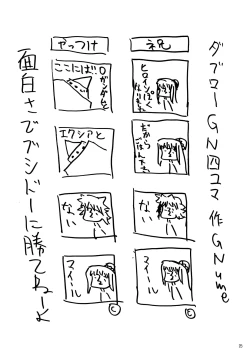 ダブローGN四コマ 作 GNume
祝
ヒロインぽく
だから
ない
マイール
©
やっつけ
ここには!!
Oガンダムと
エクシアと
ない
マイール
©
面白さでブシドーに勝てねーよ